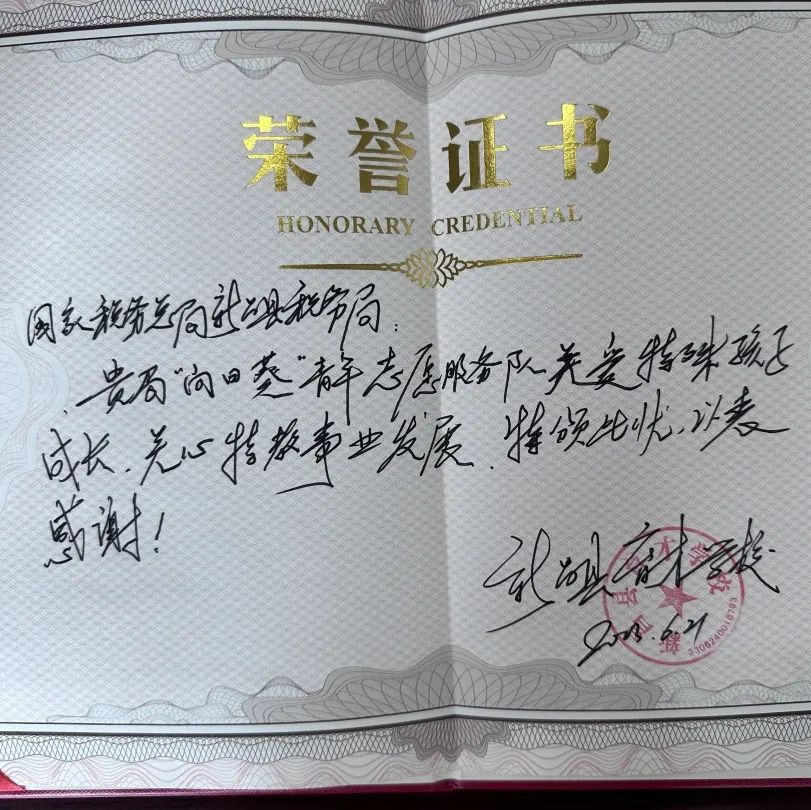 荣誉证书
HONORARY CREDENTIAL
国家税务总局新昌县税务局：
贵局“向日葵”青年志愿服务队关爱特殊孩子
成长、关心特教事业发展、特颁此状，以表
感谢！
新昌县育才学校
2023.6.21
新昌县育才学校
3306240018793